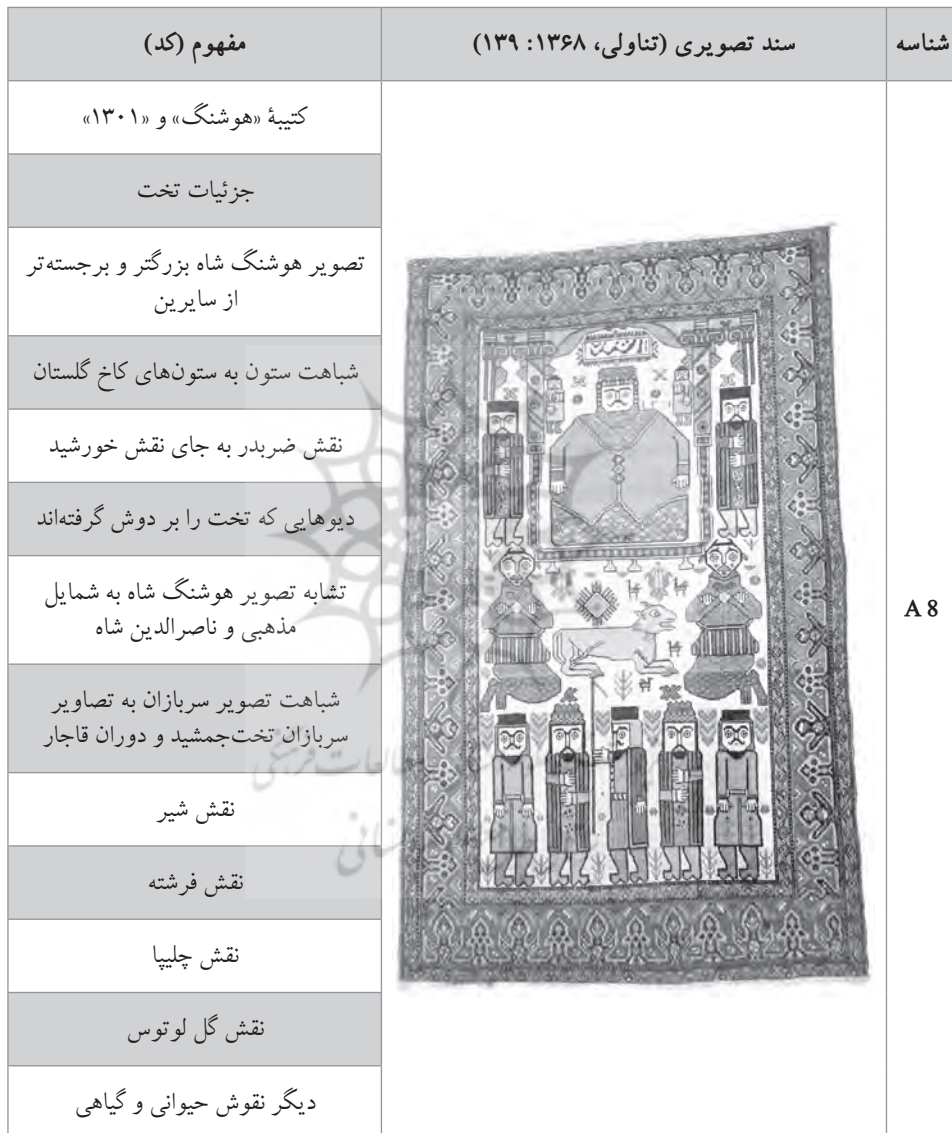 شناسه
سند تصویری (تناولی، ۱۳۶۸: ۱۳۹)
مفهوم (کد)
A 8
کتیبهٔ «هوشنگ» و «۱۳۰۱»
جزئیات تخت
تصویر هوشنگ شاه بزرگتر و برجسته‌تر
از سایرین
شباهت ستون به ستون‌های کاخ گلستان
نقش ضربدر به جای نقش خورشید
دیوهایی که تخت را بر دوش گرفته‌اند
تشابه تصویر هوشنگ شاه به شمایل
مذهبی و ناصرالدین شاه
شباهت تصویر سربازان به تصاویر
سربازان تخت‌جمشید و دوران قاجار
نقش شیر
نقش فرشته
نقش چلیپا
نقش گل لوتوس
دیگر نقوش حیوانی و گیاهی